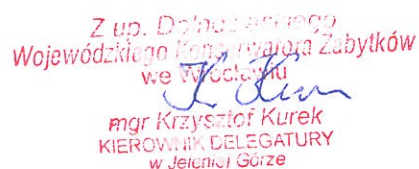 Z up. Dolnośląskiego
Wojewódzkiego Konserwatora Zabytków
we Wrocławiu
mgr Krzysztof Kurek
KIEROWNIK DELEGATURY
w Jeleniej Górze